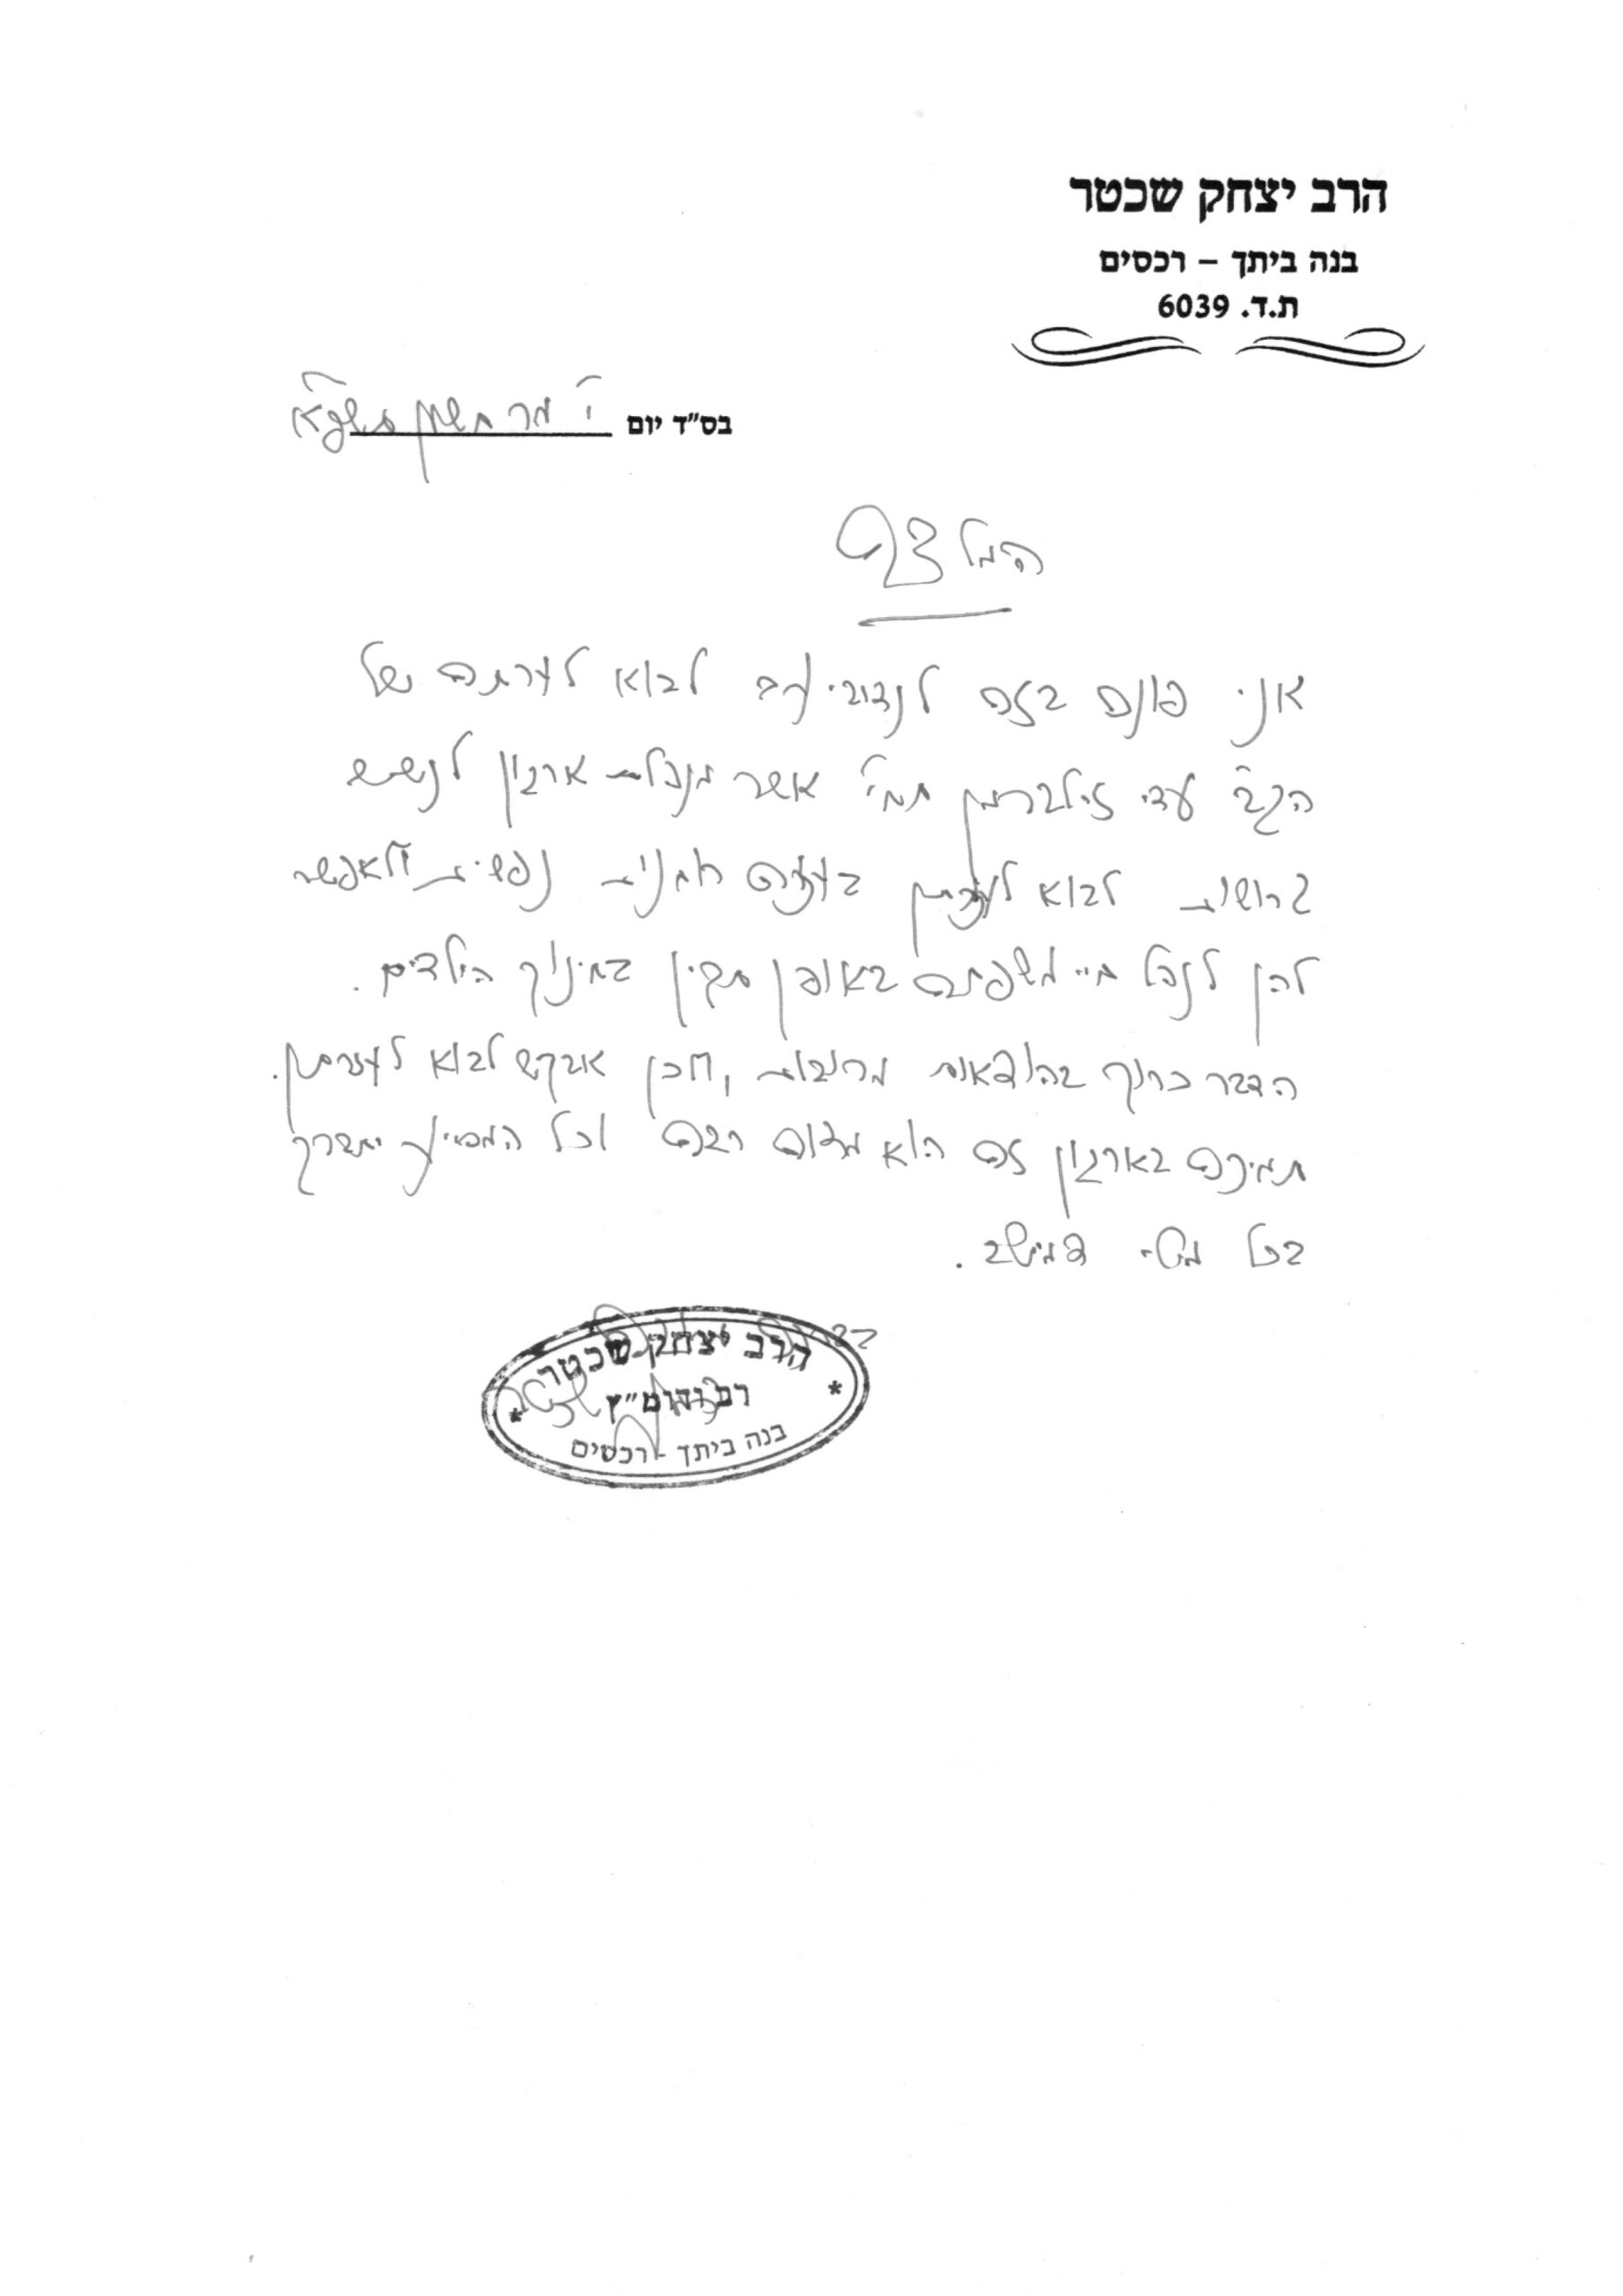 הרב יצחק שכטר
בנה ביתך – רכסים
ת.ד. 6039
בס"ד יום י' מר חשון תשפ"א
המלצה
אני פונה בזה לנדיבי לב לבוא לעזרתה של
הגב' עדי זילברמן תחי' אשר מנהלת ארגון לנשים
גרושות לבוא לעזרתן בעצה הגונית נפשית ולאפשר
להן לנהל חיי משפחה באופן תקין בחינוך הילדים.
הדבר כרוך בהוצאות מרובות, ולכן אבקש לבוא לעזרתן.
תמיכה בארגון זה הוא מצוה רבה וכל המסייע יתברך
בכל מילי דמיטב.
הרב יצחק שכטר
רב ומו"ץ
בנה ביתך - רכסים